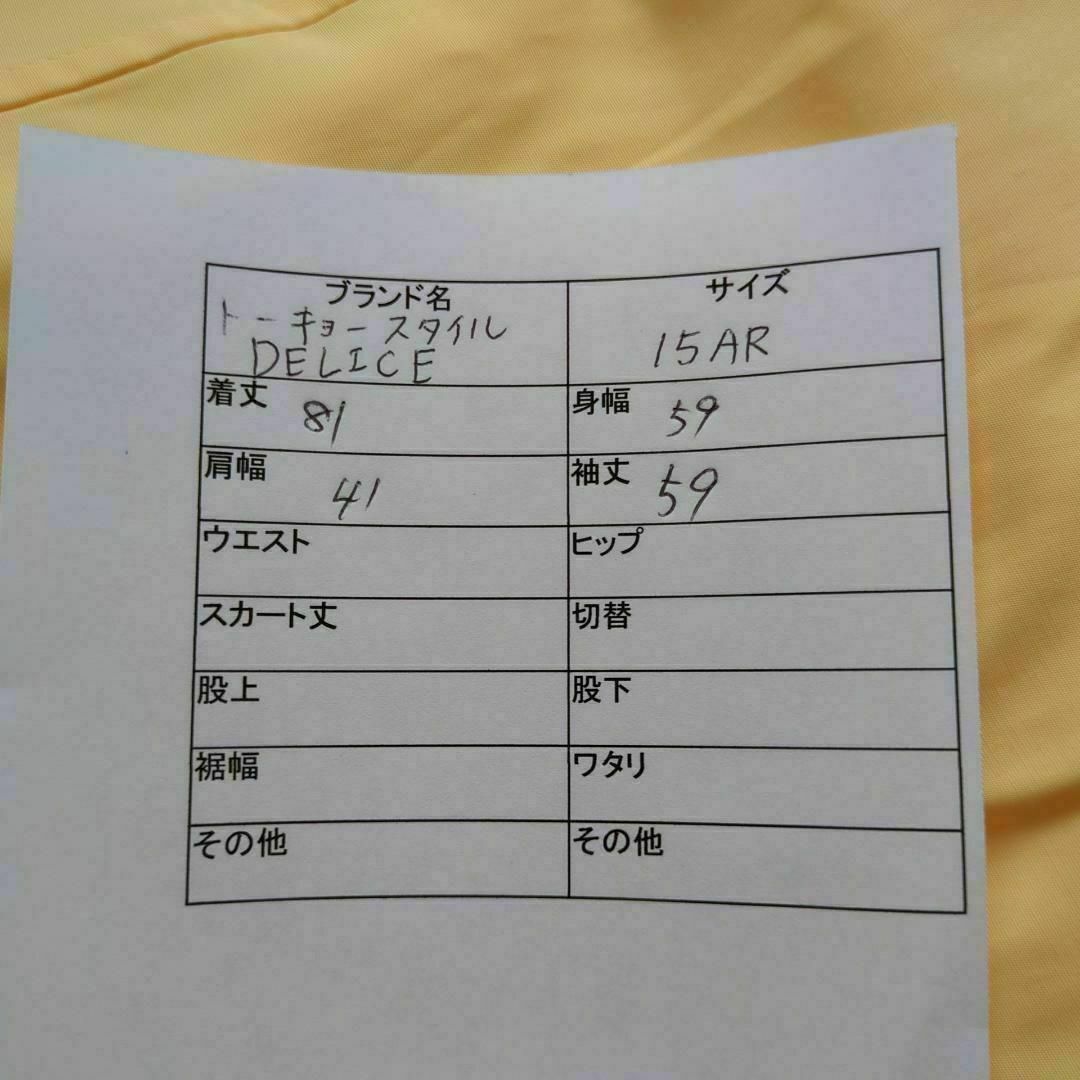 ブランド名
トーキョースタイル
DELICE
サイズ
15AR
着丈 81
身幅 59
肩幅 41
袖丈 59
ウエスト
ヒップ
スカート丈
切替
股上
股下
裾幅
ワタリ
その他
その他